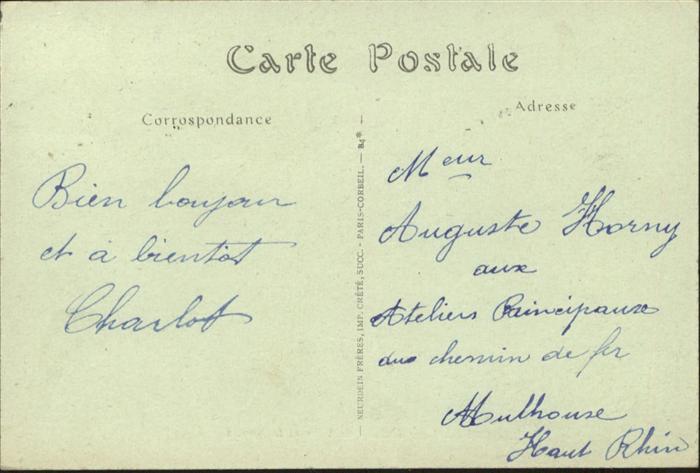 Carte Postale
Correspondance
Adresse
Bien bonjour
et à bientôt
Charlot
NEURDEIN FRÈRES, IMP. CRÉTÉ, SUCC. - PARIS-CORBEIL. - 84*
Meur
Auguste Horny
aux
Ateliers Principaux
du chemin de fer
Mulhouse
Haut Rhin